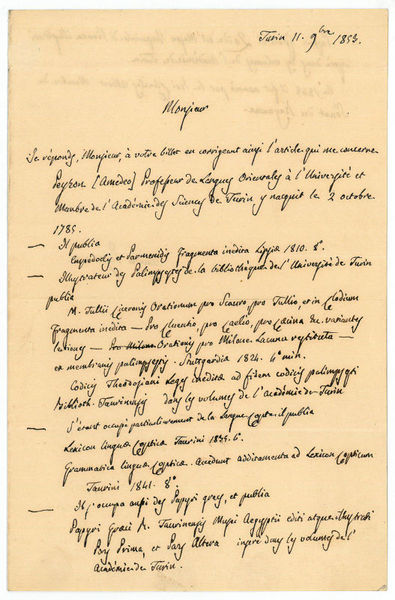 Turin 11. 9bre 1853.
Monsieur
Je réponds, Monsieur, à votre billet en corrigeant ainsi l'article qui me concerne
Peyron [Amedeo] Professeur de Langues Orientales à l'Université et
Membre de l'Académie des Sciences de Turin, y naquit le 2 octobre
1785.
— Il publia
Empedoclis et Parmenidis fragmenta inedita Lipsiæ 1810. 8°.
— Illustrateur des Palimpsestes de la bibliothèque de l'Université de Turin
publia
M. Tullii Ciceronis Orationum pro Scauro, pro Tullio, et in Clodium
Fragmenta inedita — Pro Cluentio, pro Caelio, pro Caecina &c variantes
lectiones — Pro Milone Orationis pro Milone Lacuna restituta —
ex membranis palimpsestis. Stuttgardiæ 1824. 4° min.
Codicis Theodosiani Leges ineditæ ad fidem codicis palimpsesti
Biblioth. Taurinensis dans les volumes de l'Académie de Turin
— S'étant occupé particulièrement de la Langue Copte il publia
Lexicon linguæ Copticæ Taurini 1835. 
Grammatica linguæ Copticæ. Accedunt additamenta ad Lexicon Copticum
Taurini 1841. 8°.
— Il s'occupa aussi des Papyri grecs, et publia
Papyri Græci R. Taurinensis Musei Aegyptii editi atque illustrati
Pars Prima, et Pars Altera inséré dans les volumes de l'
Académie de Turin.